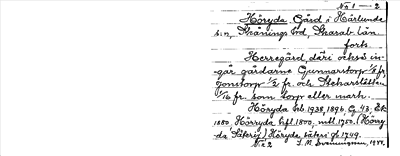 No 1 — 2
Höryda. Gård i Härlunda
s:n, Skånings hd, Skarab. län.
forts.
Herregård, däri också in-
går gårdarne Gunnarstorp 1/8 fr,
Jonstorp 1/2 fr. och Steharslätten
1/16 fr. som torp eller mark.
Höryda hb 1938, 1896, G 43. Ek.
1880, Hörryda hfl 1800, mtl 1750. (Höry-
da Säteri) Höryda, säteri jb 1749.
No 2 S. M. Svenungsson, 1944.